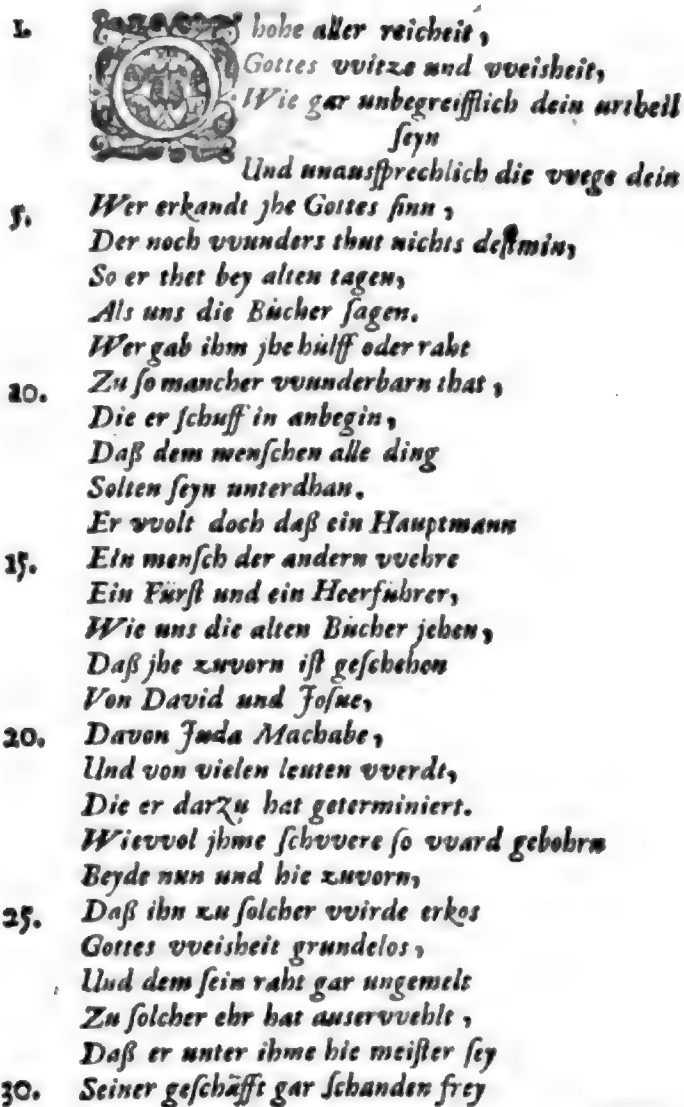 1. O hohe aller reicheit,
Gottes vvitze und vveisheit,
Wie gar unbegreifflich dein urtheil
ſeyn
Und unausſprechlich die vvege dein
5. Wer erkandt jhe Gottes ſinn,
Der noch vvunders thut nichts deſtmin,
So er thet bey alten tagen,
Als uns die Bücher ſagen.
Wer gab ihm jhe hülff oder raht
10. Zu ſo mancher vvunderbarn that,
Die er ſchuff in anbegin,
Daß dem menſchen alle ding
Solten ſeyn unterdhan.
Er vvolt doch daß ein Hauptmann
15. Ein menſch der andern vvehre
Ein Fürſt und ein Heerführer,
Wie uns die alten Bücher jehen,
Daß jhe zuvorn iſt geſchehen
Von David und Joſue,
20. Davon Juda Machabe,
Und von vielen leuten vverdt,
Die er darzu hat geterminiert.
Wievvol jhme ſchvvere ſo vvard gebohrn
Beyde nun und hie zuvorn,
25. Daß ihn zu ſolcher vvirde erkos
Gottes vveisheit grundelos,
Und dem ſein raht gar ungemelt
Zu ſolcher ehr hat auservvehlt,
Daß er unter ihme hie meiſter ſey
30. Seiner geſchäfft gar ſchanden frey